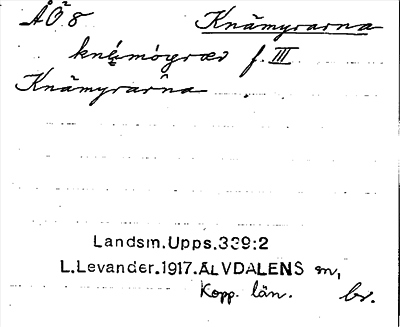 ÅÖ²8 Knämyrarna
knę́mógrær f. III
Knämyrarna
Landsm. Upps. 339:2
L. Levander. 1917. ÄLVDALENS sn,
Kopp. län. br.